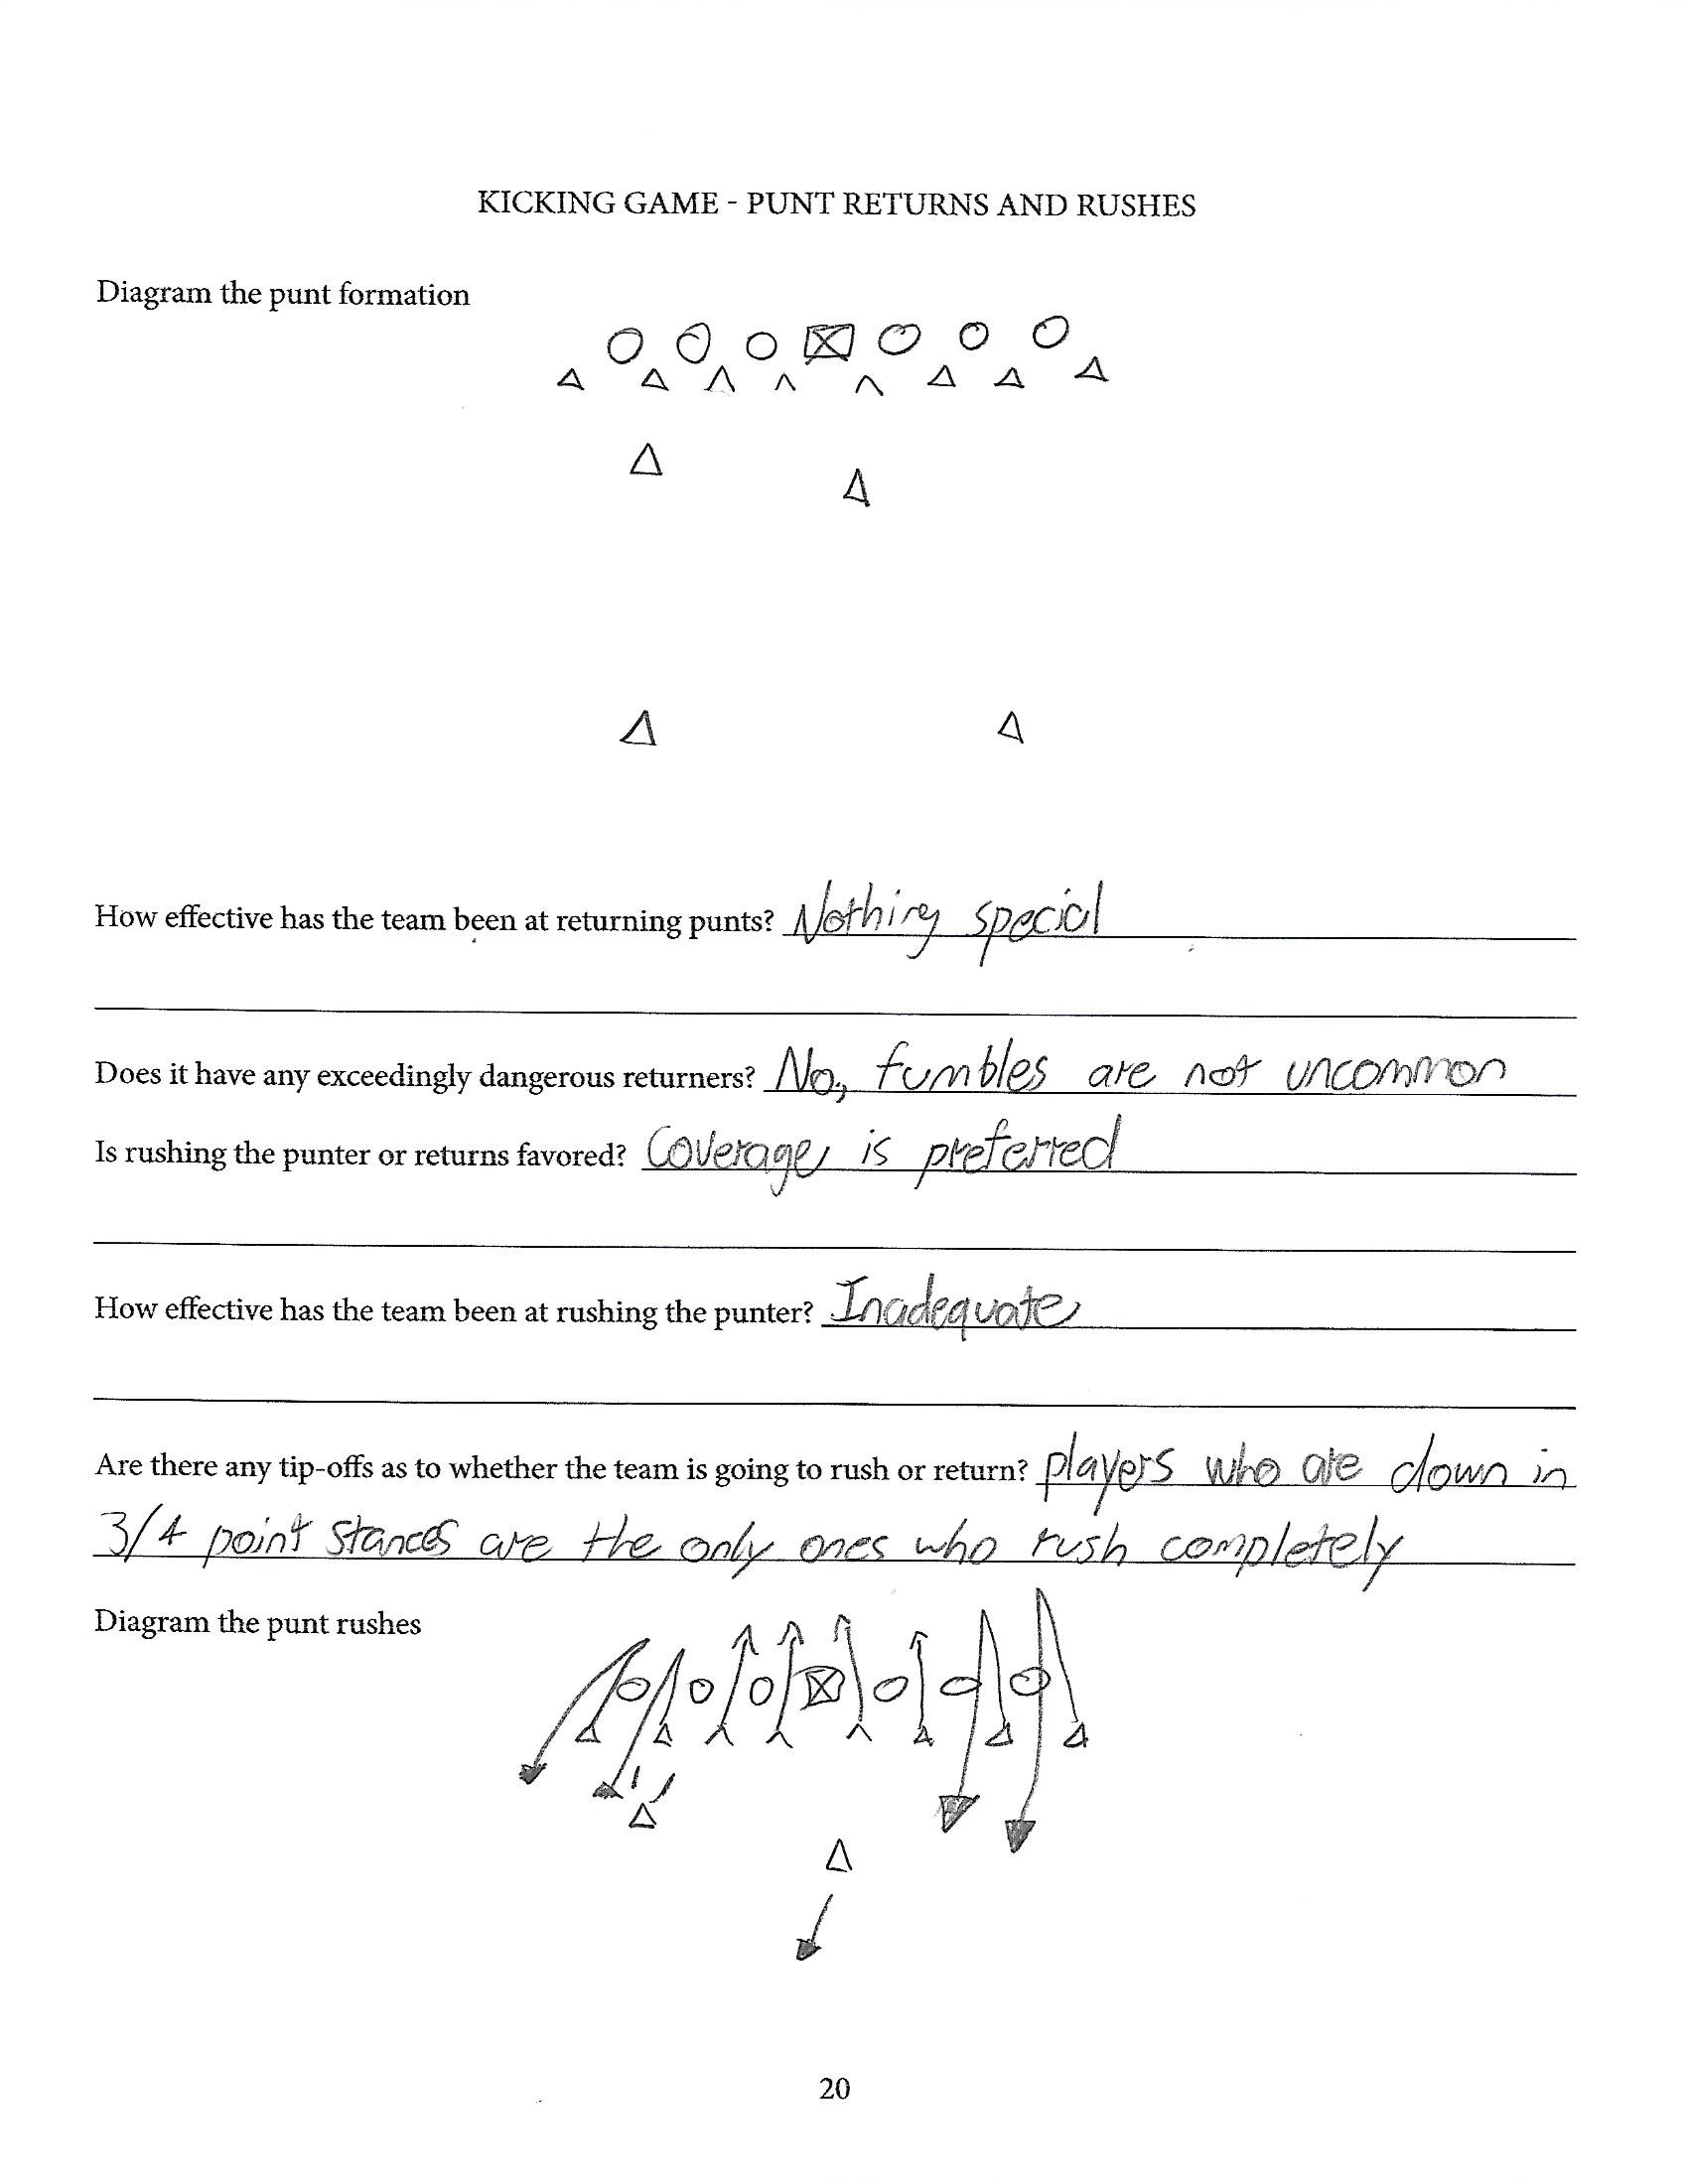 KICKING GAME - PUNT RETURNS AND RUSHES
Diagram the punt formation
How effective has the team been at returning punts? Nothing special
Does it have any exceedingly dangerous returners? No, fumbles are not uncommon
Is rushing the punter or returns favored? Coverage is preferred
How effective has the team been at rushing the punter? Inadequate
Are there any tip-offs as to whether the team is going to rush or return? players who are down in
3/4 point stances are the only ones who rush completely
Diagram the punt rushes
20